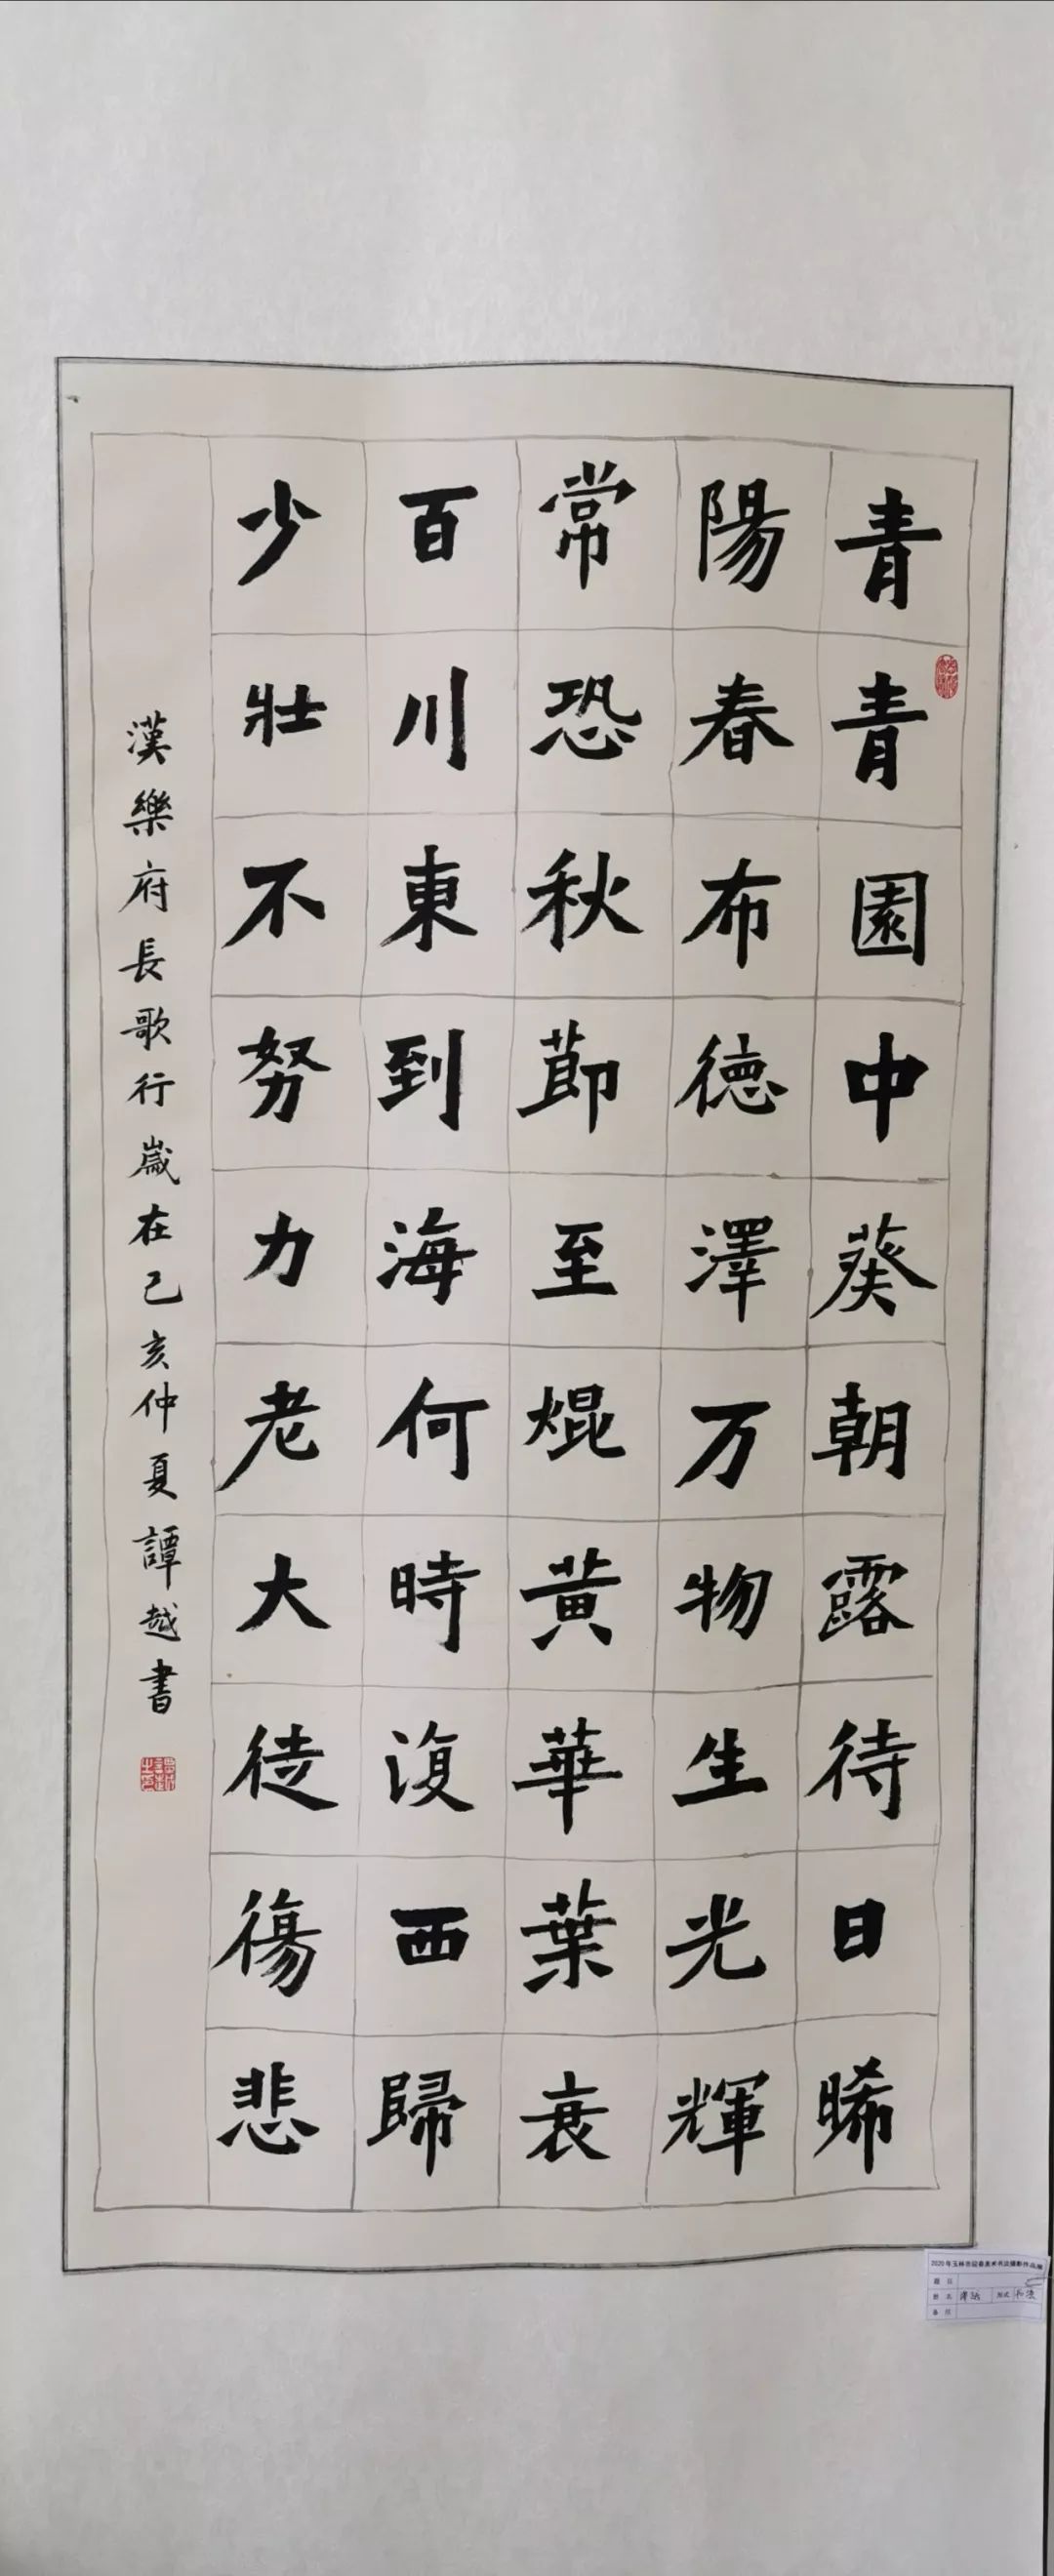 青青園中葵朝露待日晞
陽春布德澤万物生光輝
常恐秋節至焜黃華葉衰
百川東到海何時復西歸
少壯不努力老大徒傷悲
漢樂府長歌行歲在己亥仲夏譚越書
2020年玉林市迎春美术书法摄影作品展
题目
姓名 谭越 形式 书法
备注